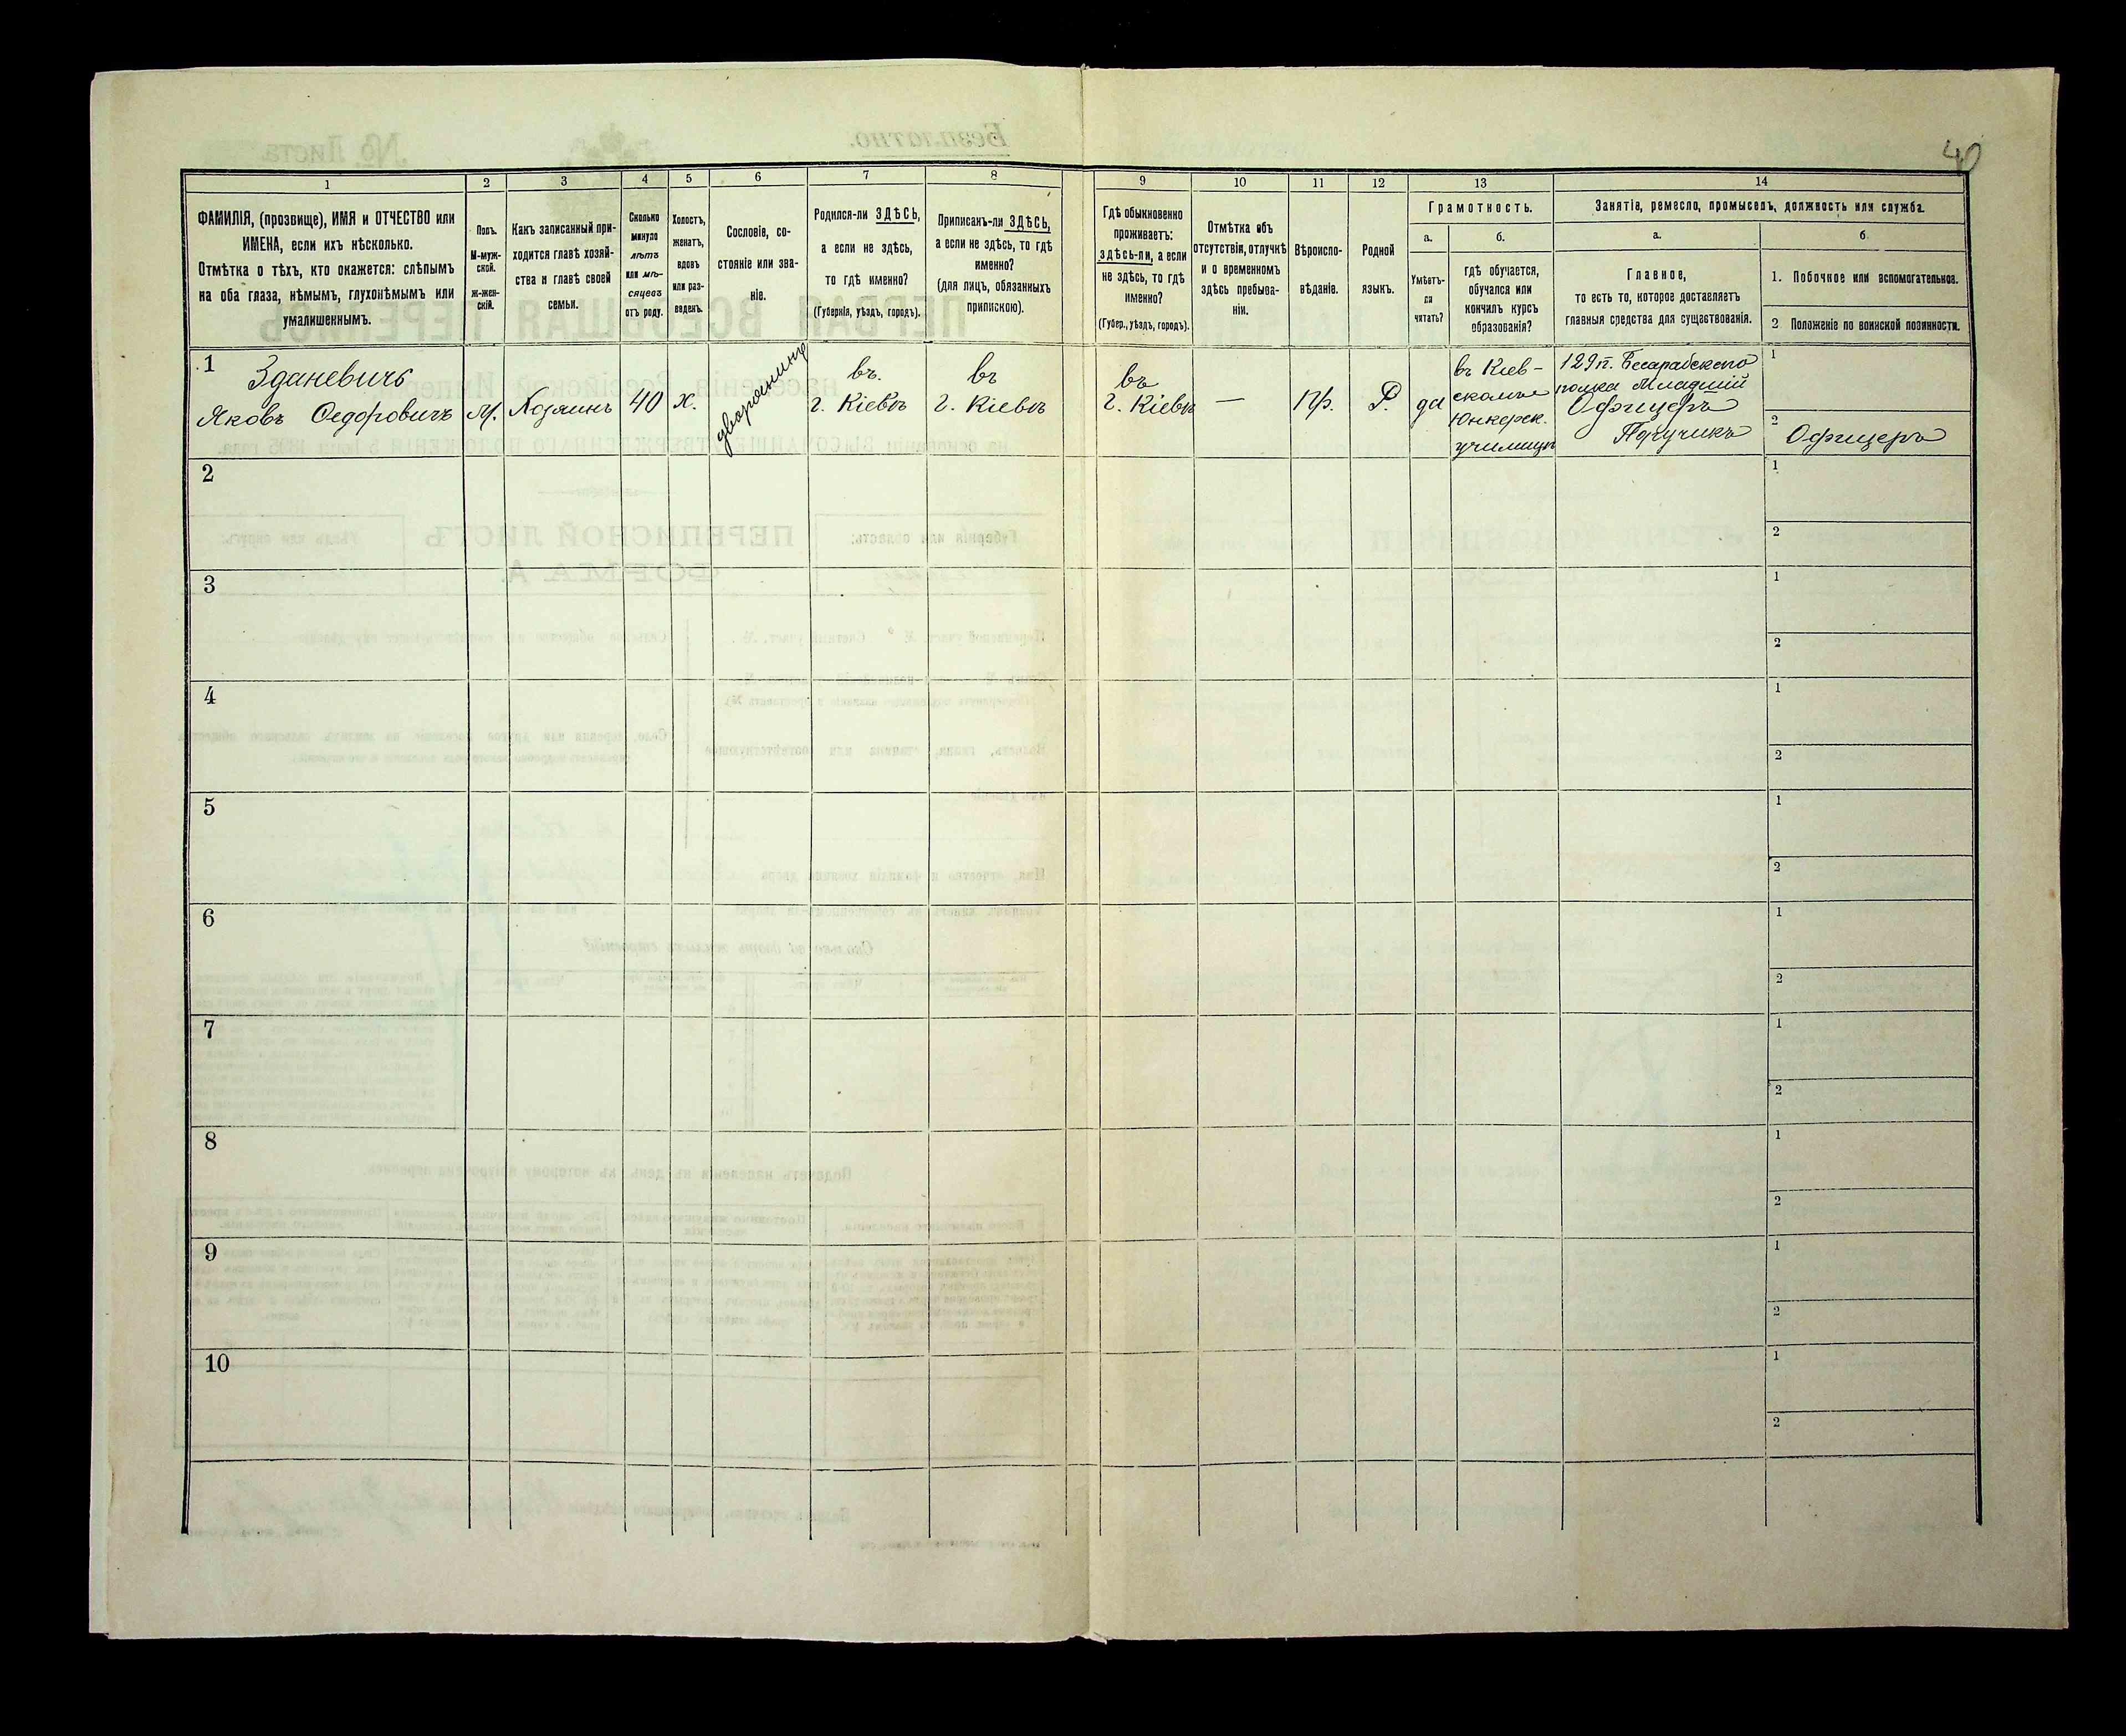 40
1
2
3
4
5
6
7
8
9
10
11
12
13
14
ФАМИЛІЯ, (прозвище), ИМЯ и ОТЧЕСТВО или
ИМЕНА, если ихъ нѣсколько.
Отмѣтка о тѣхъ, кто окажется: слѣпымъ
на оба глаза, нѣмымъ, глухонѣмымъ или
умалишеннымъ.
Полъ.
М-муж-
ской.
ж-жен-
скій.
Какъ записанный при-
ходится главѣ хозяй-
ства и главѣ своей
семьи.
Сколько
минуло
лѣтъ
или мѣ-
сяцевъ
отъ роду.
Холостъ,
женатъ,
вдовъ
или раз-
веденъ.
Сословіе, со-
стояніе или зва-
ніе.
Родился-ли ЗДѢСЬ,
а если не здѣсь,
то гдѣ именно?
(Губернія, уѣздъ, городъ).
Приписанъ-ли ЗДѢСЬ,
а если не здѣсь, то гдѣ
именно?
(для лицъ, обязанныхъ
припискою).
Гдѣ обыкновенно
проживаетъ:
здѣсь-ли, а если
не здѣсь, то гдѣ
именно?
(Губер., уѣздъ, городъ).
Отмѣтка объ
отсутствіи, отлучкѣ
и о временномъ
здѣсь пребыва-
ніи.
Вѣроиспо-
вѣданіе.
Родной
языкъ.
Грамотность.
а.
Умѣетъ-
ли
читать?
б.
гдѣ обучается,
обучался или
кончилъ курсъ
образованія?
Занятіе, ремесло, промыселъ, должность или служба.
а.
Главное,
то есть то, которое доставляетъ
главныя средства для существованія.
б.
1. Побочное или вспомогательное.
2 Положеніе по воинской повинности.
1
Зданевичъ
Яковъ Ѳедоровичъ
М.
Хозяинъ
40
х.
дворянинъ
въ.
г. Кіевѣ
въ
г. Кіевѣ
въ
г. Кіевѣ
—
Пр.
Р.
да
въ Кіев-
скомъ
Юнкерск.
училищѣ
129 п. Бесарабского
полка Младшій
Офицеръ
Поручикъ
1
2
Офицеръ
2
1
2
3
1
2
4
1
2
5
1
2
6
1
2
7
1
2
8
1
2
9
1
2
10
1
2